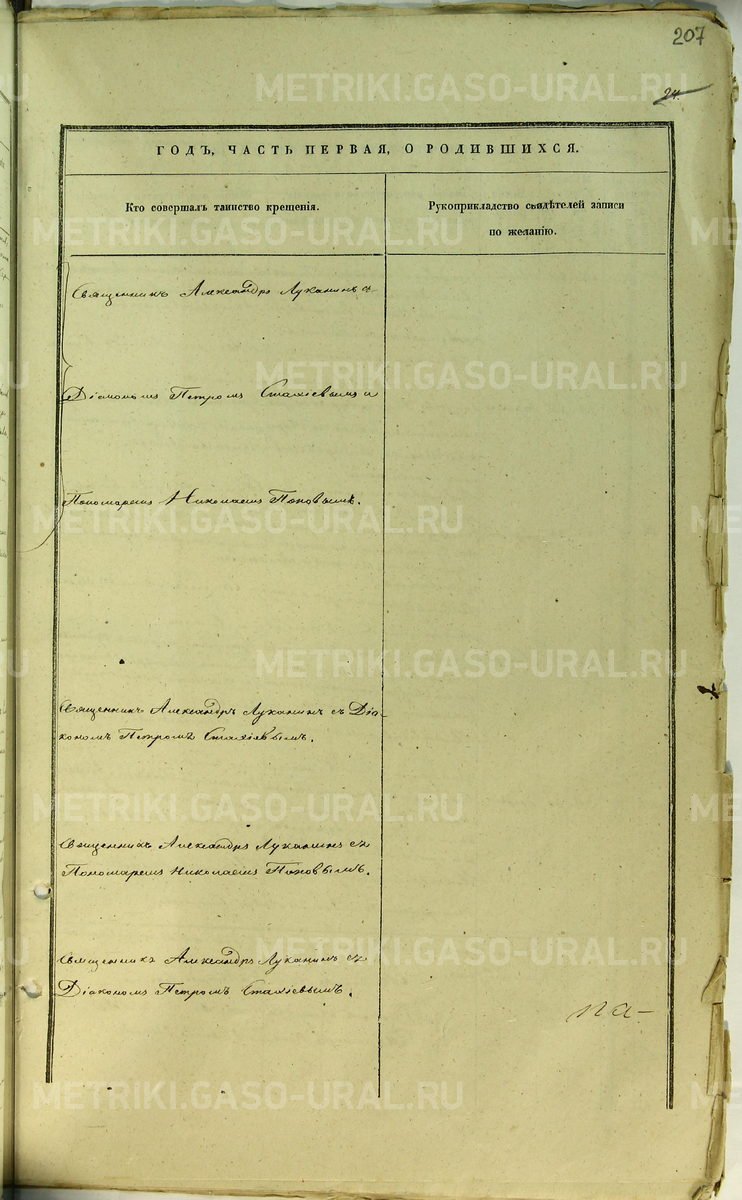 207
24.
ГОДЪ, ЧАСТЬ ПЕРВАЯ, О РОДИВШИХСЯ.
Кто совершалъ таинство крещенія.
Рукоприкладство свидѣтелей записи
по желанію.
Священникъ Александръ Луканинъ съ
Діакономъ Петромъ Стахіевымъ и
Пономаремъ Николаемъ Поповымъ.
Священникъ Александръ Луканинъ съ Діа-
кономъ Петромъ Стахіевымъ.
Священникъ Александръ Луканинъ съ
Пономаремъ Николаемъ Поповымъ.
Священникъ Александръ Луканинъ съ
Діакономъ Петромъ Стахіевымъ.
METRIKI.GASO-URAL.RU